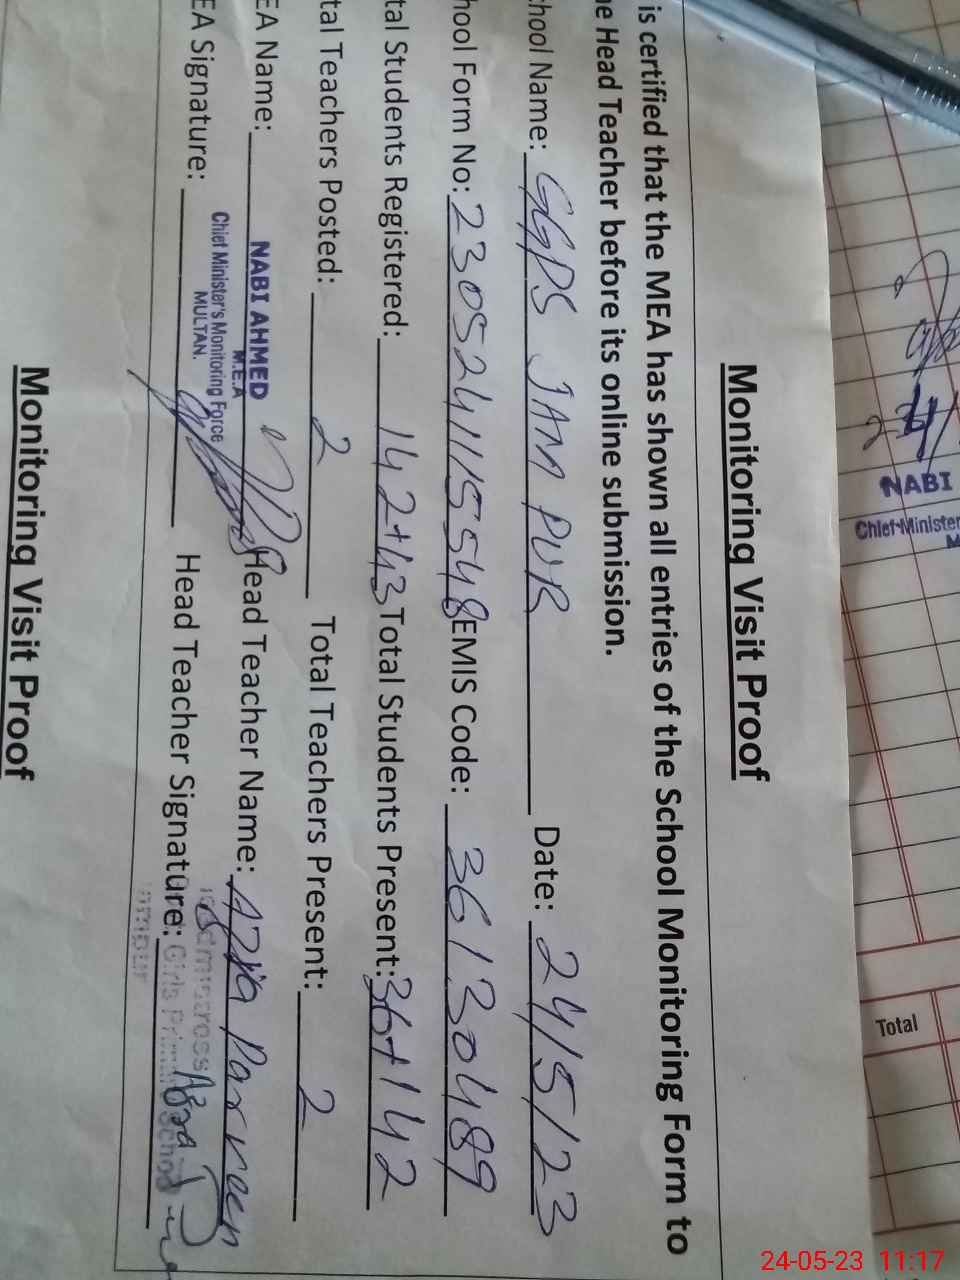 Monitoring Visit Proof
is certified that the MEA has shown all entries of the School Monitoring Form to
e Head Teacher before its online submission.
chool Name: GGPS JAM PUR Date: 24/5/23
hool Form No: 23052411155548 EMIS Code: 36130489
tal Students Registered: 142+43 Total Students Present: 36+142
tal Teachers Posted: 2 Total Teachers Present: 2
EA Name: NABI AHMED Head Teacher Name: Azra Parveen
M.E.A
Chief Minister's Monitoring Force
MULTAN.
EA Signature: Head Teacher Signature: Azra
Girls Primary School
Monitoring Visit Proof
NABI
Chief Minister
M
2
Total
24-05-23 11:17